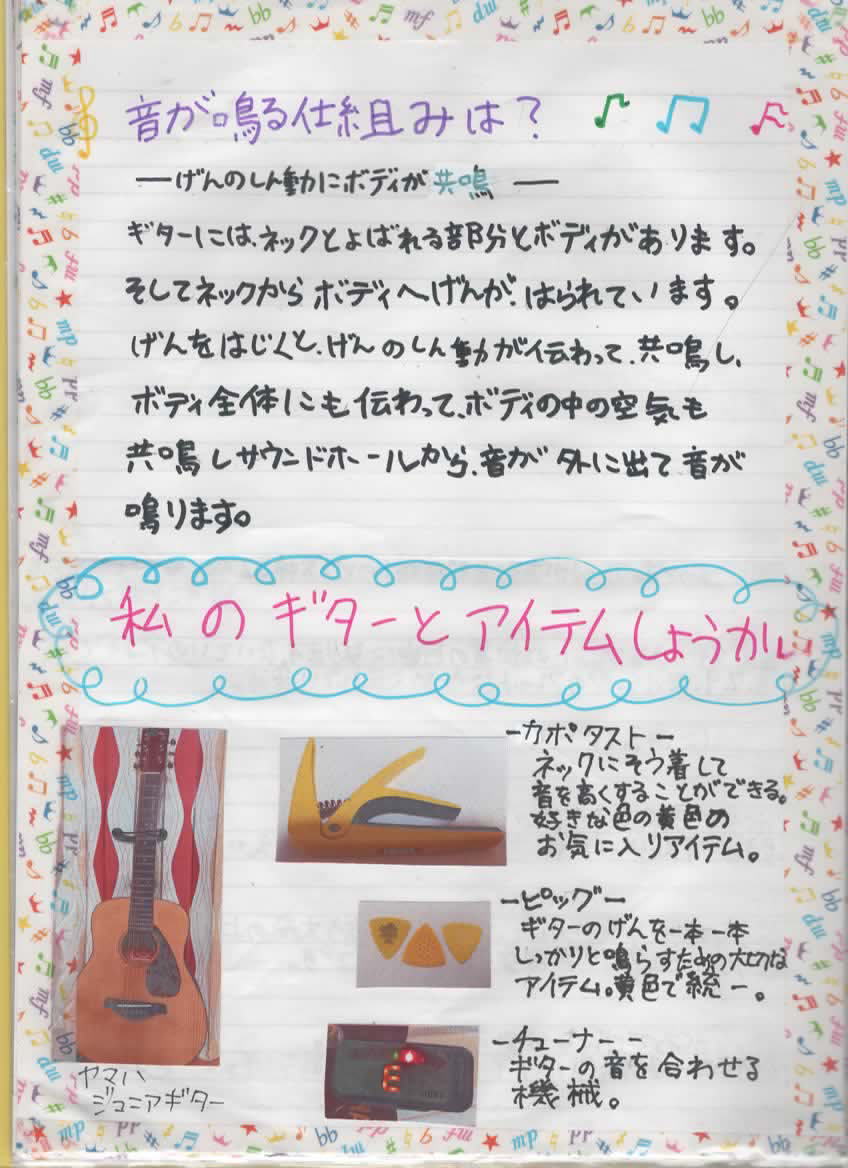 音が鳴る仕組みは?
ーげんのしん動にボディが共鳴ー
ギターには、ネックとよばれる部分とボディがあります。
そしてネックからボディへげんが、はられています。
げんをはじくと、げんのしん動が伝わって、共鳴し、
ボディ全体にも伝わって、ボディの中の空気も
共鳴しサウンドホールから、音が外に出て音が
鳴ります。
私のギターとアイテムしょうかい
ーカポタストー
ネックにそう着して
音を高くすることができる。
好きな色の黄色の
お気に入りアイテム。
ーピッグー
ギターのげんを一本一本
しっかりと鳴らすための大切な
アイテム。黄色で統一。
ーチューナーー
ギターの音を合わせる
機械。
ヤマハ
ジュニアギター